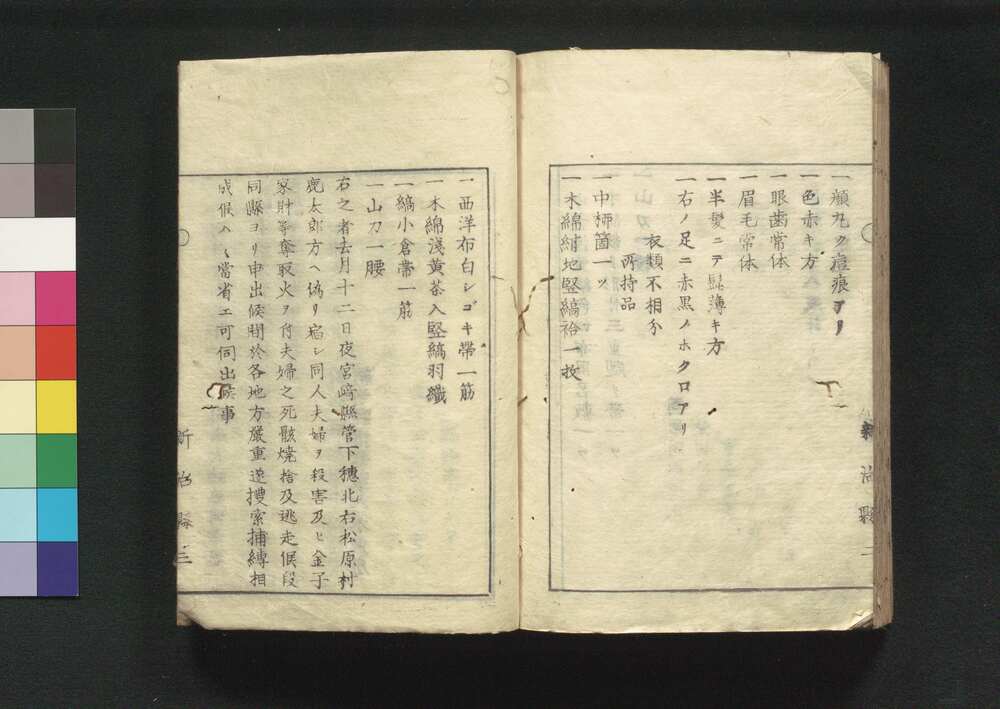 一頬九ク痘痕アリ
一色赤キ方
一眼歯常体
一眉毛常体
一半髪ニテ髭薄キ方
一右ノ足ニ赤黒ノホクロアリ
衣類不相分
所持品
一中柳箇一ツ
一木綿紺地竪縞袷一枚
新治縣二
一西洋布白シゴキ帯一筋
一木綿浅黄茶入竪縞羽織
一縞小倉帯一筋
一山刀一腰
右之者去月十二日夜宮﨑縣管下穂北右松原村
鹿太郎方ヘ偽リ宿シ同人夫婦ヲ殺害及ヒ金子
家財等奪取火ヲ付夫婦之死骸焼捨及逃走候段
同縣ヨリ申出候間於各地方嚴重遂搜索捕縛相
成候ハヽ當省エ可伺出候事
新治縣三